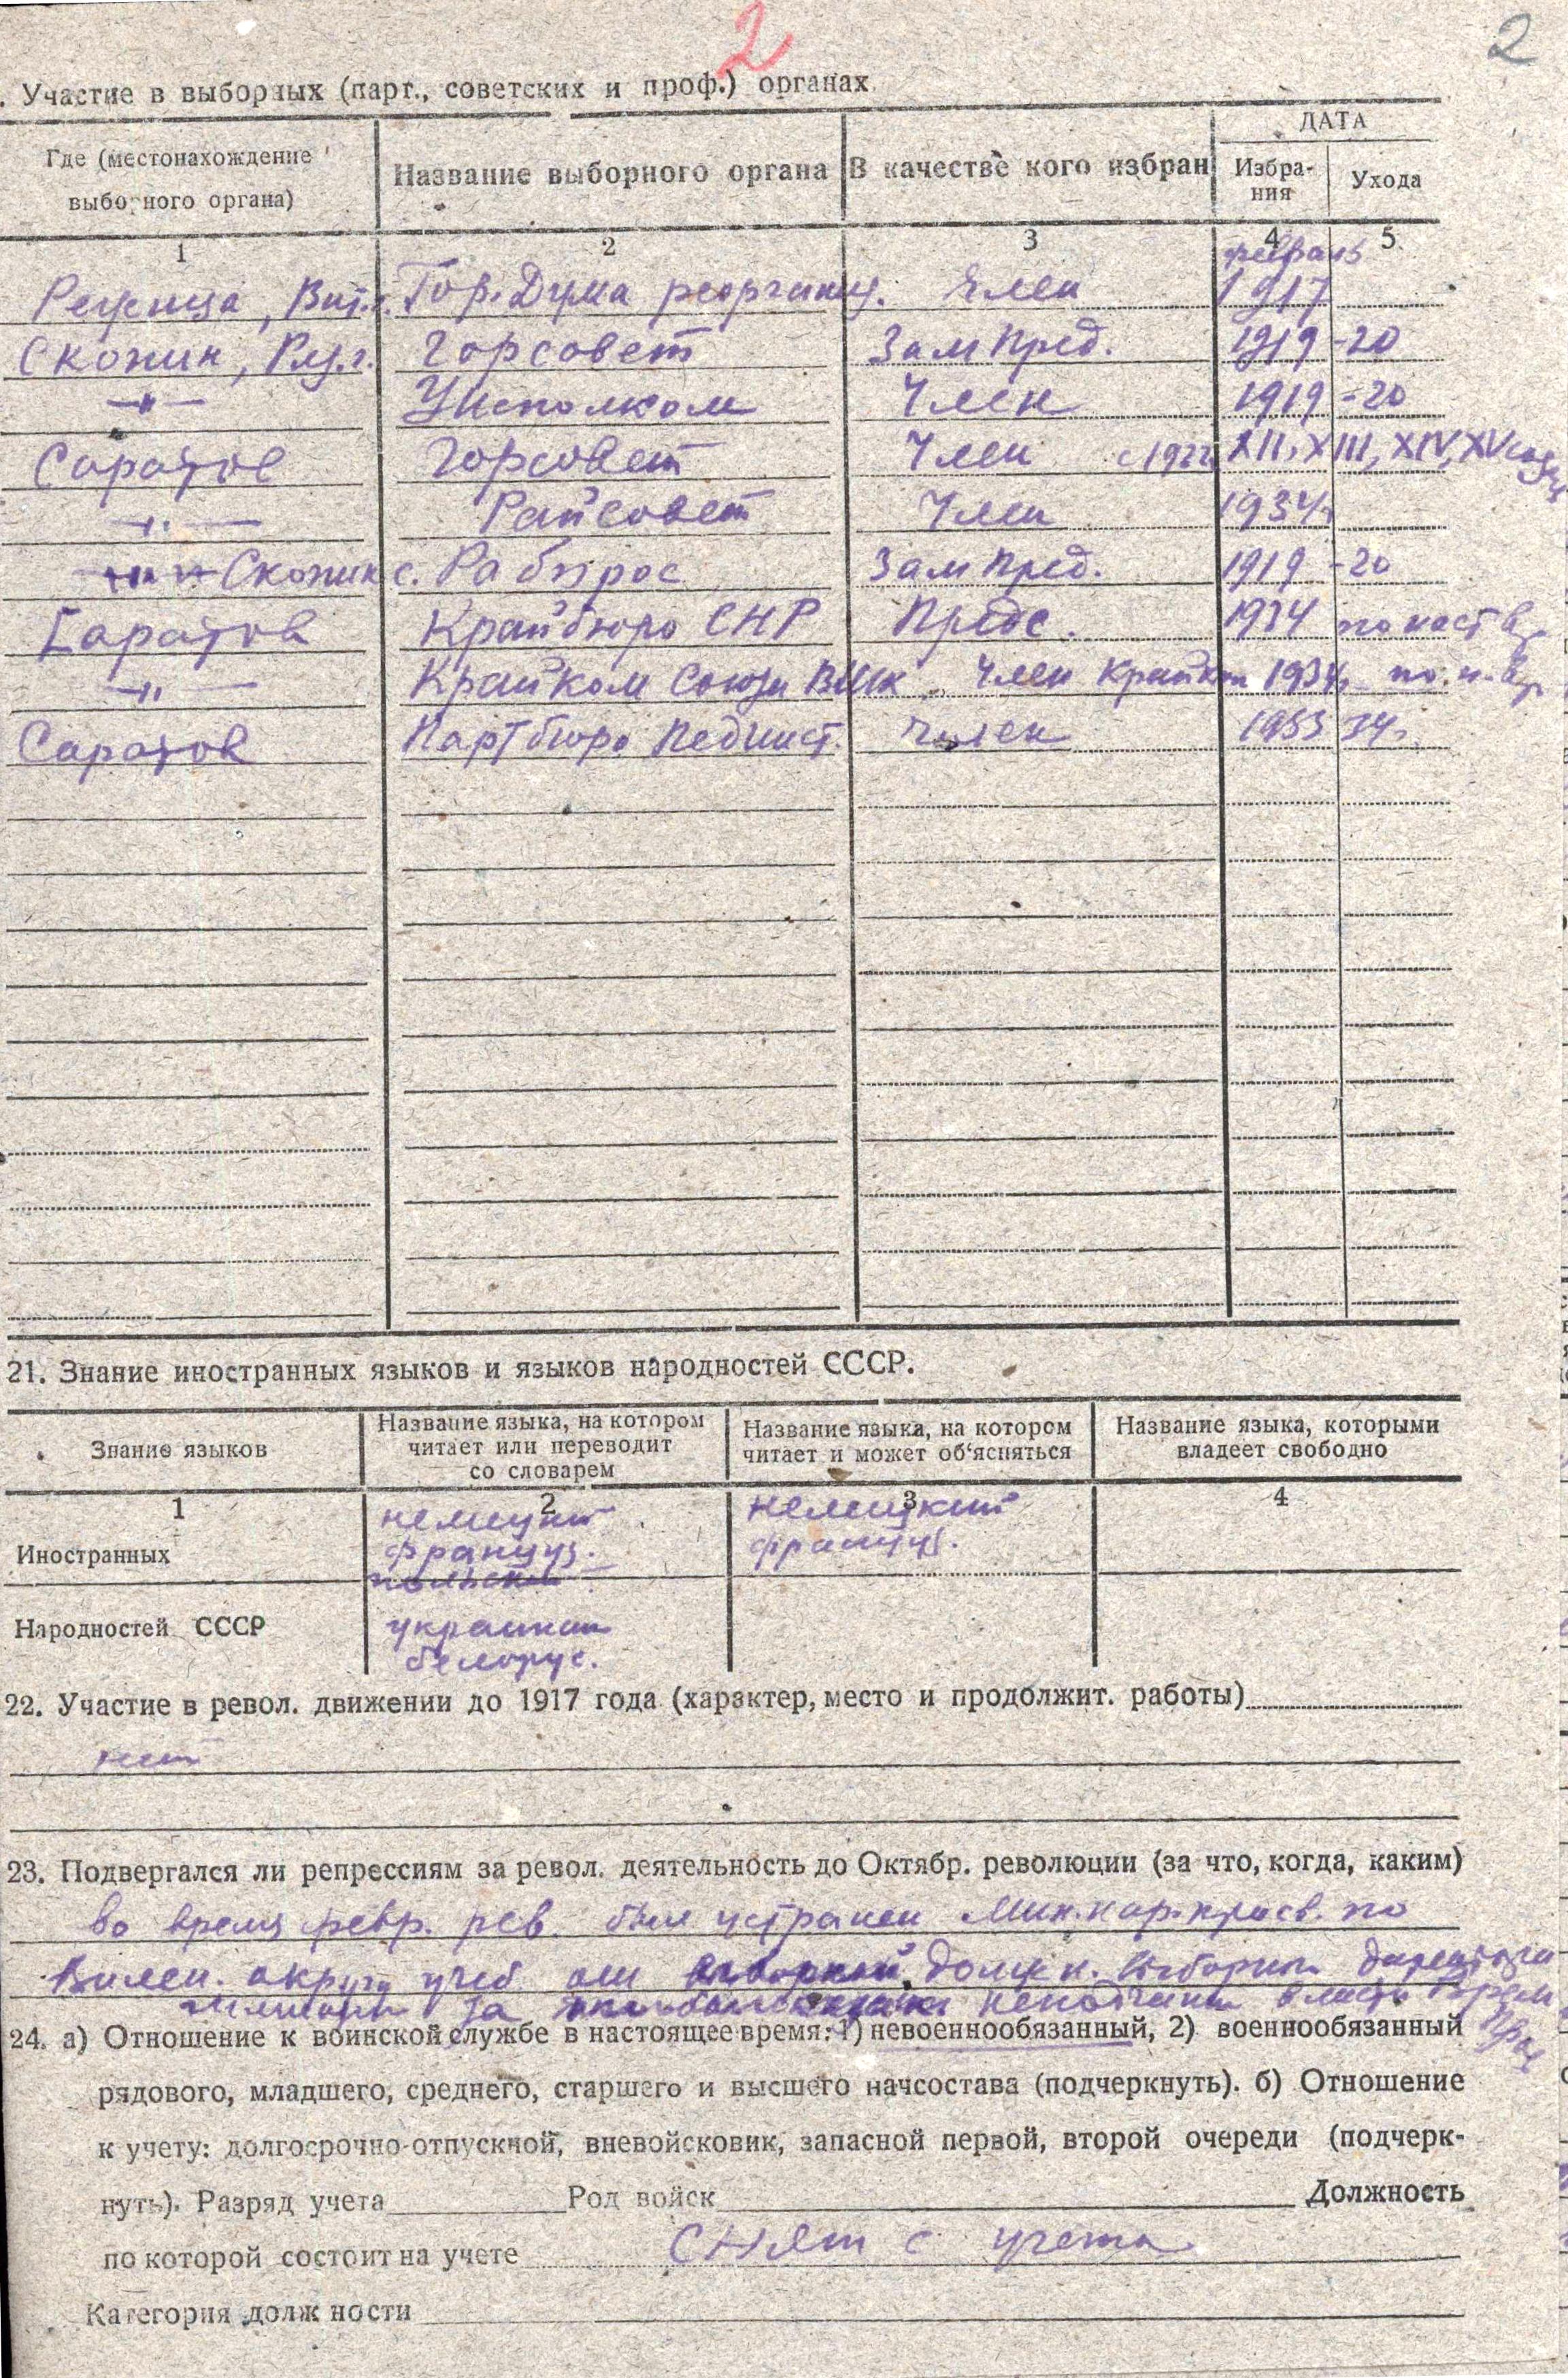 2
2
. Участие в выборных (парт., советских и проф.) органах
Где (местонахождение выборного органа) Название выборного органа В качестве кого избран ДАТА Избра-ния Ухода
1 2 3 4 5
февраль
Режица, Вит.г. Гор. Дума реорганиз. Член 1917
Скопин, Ряз.г. Горсовет ЗамПред. 1919 -20
—"— Уисполком Член 1919 -20
Саратов Горсовет Член с 1922 XII, XIII, XIV, XV созы
—"— Райсовет Член 1934г.
Скопин с. Рабпрос ЗамПред. 1919 -20
Саратов Крайбюро СНР Предс. 1934 по наст вр
—"— Крайком Союза ВШ Член Крайком 1934г. по н. вр
Саратов Партбюро Пединст. Член 1933 34г.
21. Знание иностранных языков и языков народностей СССР.
Знание языков Название языка, на котором читает или переводит со словарем Название языка, на котором читает и может об'ясняться Название языка, которыми владеет свободно
1 2 3 4
Иностранных немецкий немецкий
француз. француз.
польский
Народностей СССР украинск
белорус.
22. Участие в револ. движении до 1917 года (характер, место и продолжит. работы)
нет
23. Подвергался ли репрессиям за револ. деятельность до Октябр. революции (за что, когда, каким)
во время февр. рев. был устранен Мин.нар.просв. по
Вилен. округу учеб от должн. выборного директора
за неподчинен власти Врем
Прав
24. а) Отношение к воинской службе в настоящее время: 1) невоеннообязанный, 2) военнообязанный
рядового, младшего, среднего, старшего и высшего начсостава (подчеркнуть). б) Отношение
к учету: долгосрочно-отпускной, вневойсковик, запасной первой, второй очереди (подчерк-
нуть). Разряд учета Род войск Должность
по которой состоит на учете Снят с учета
Категория должности